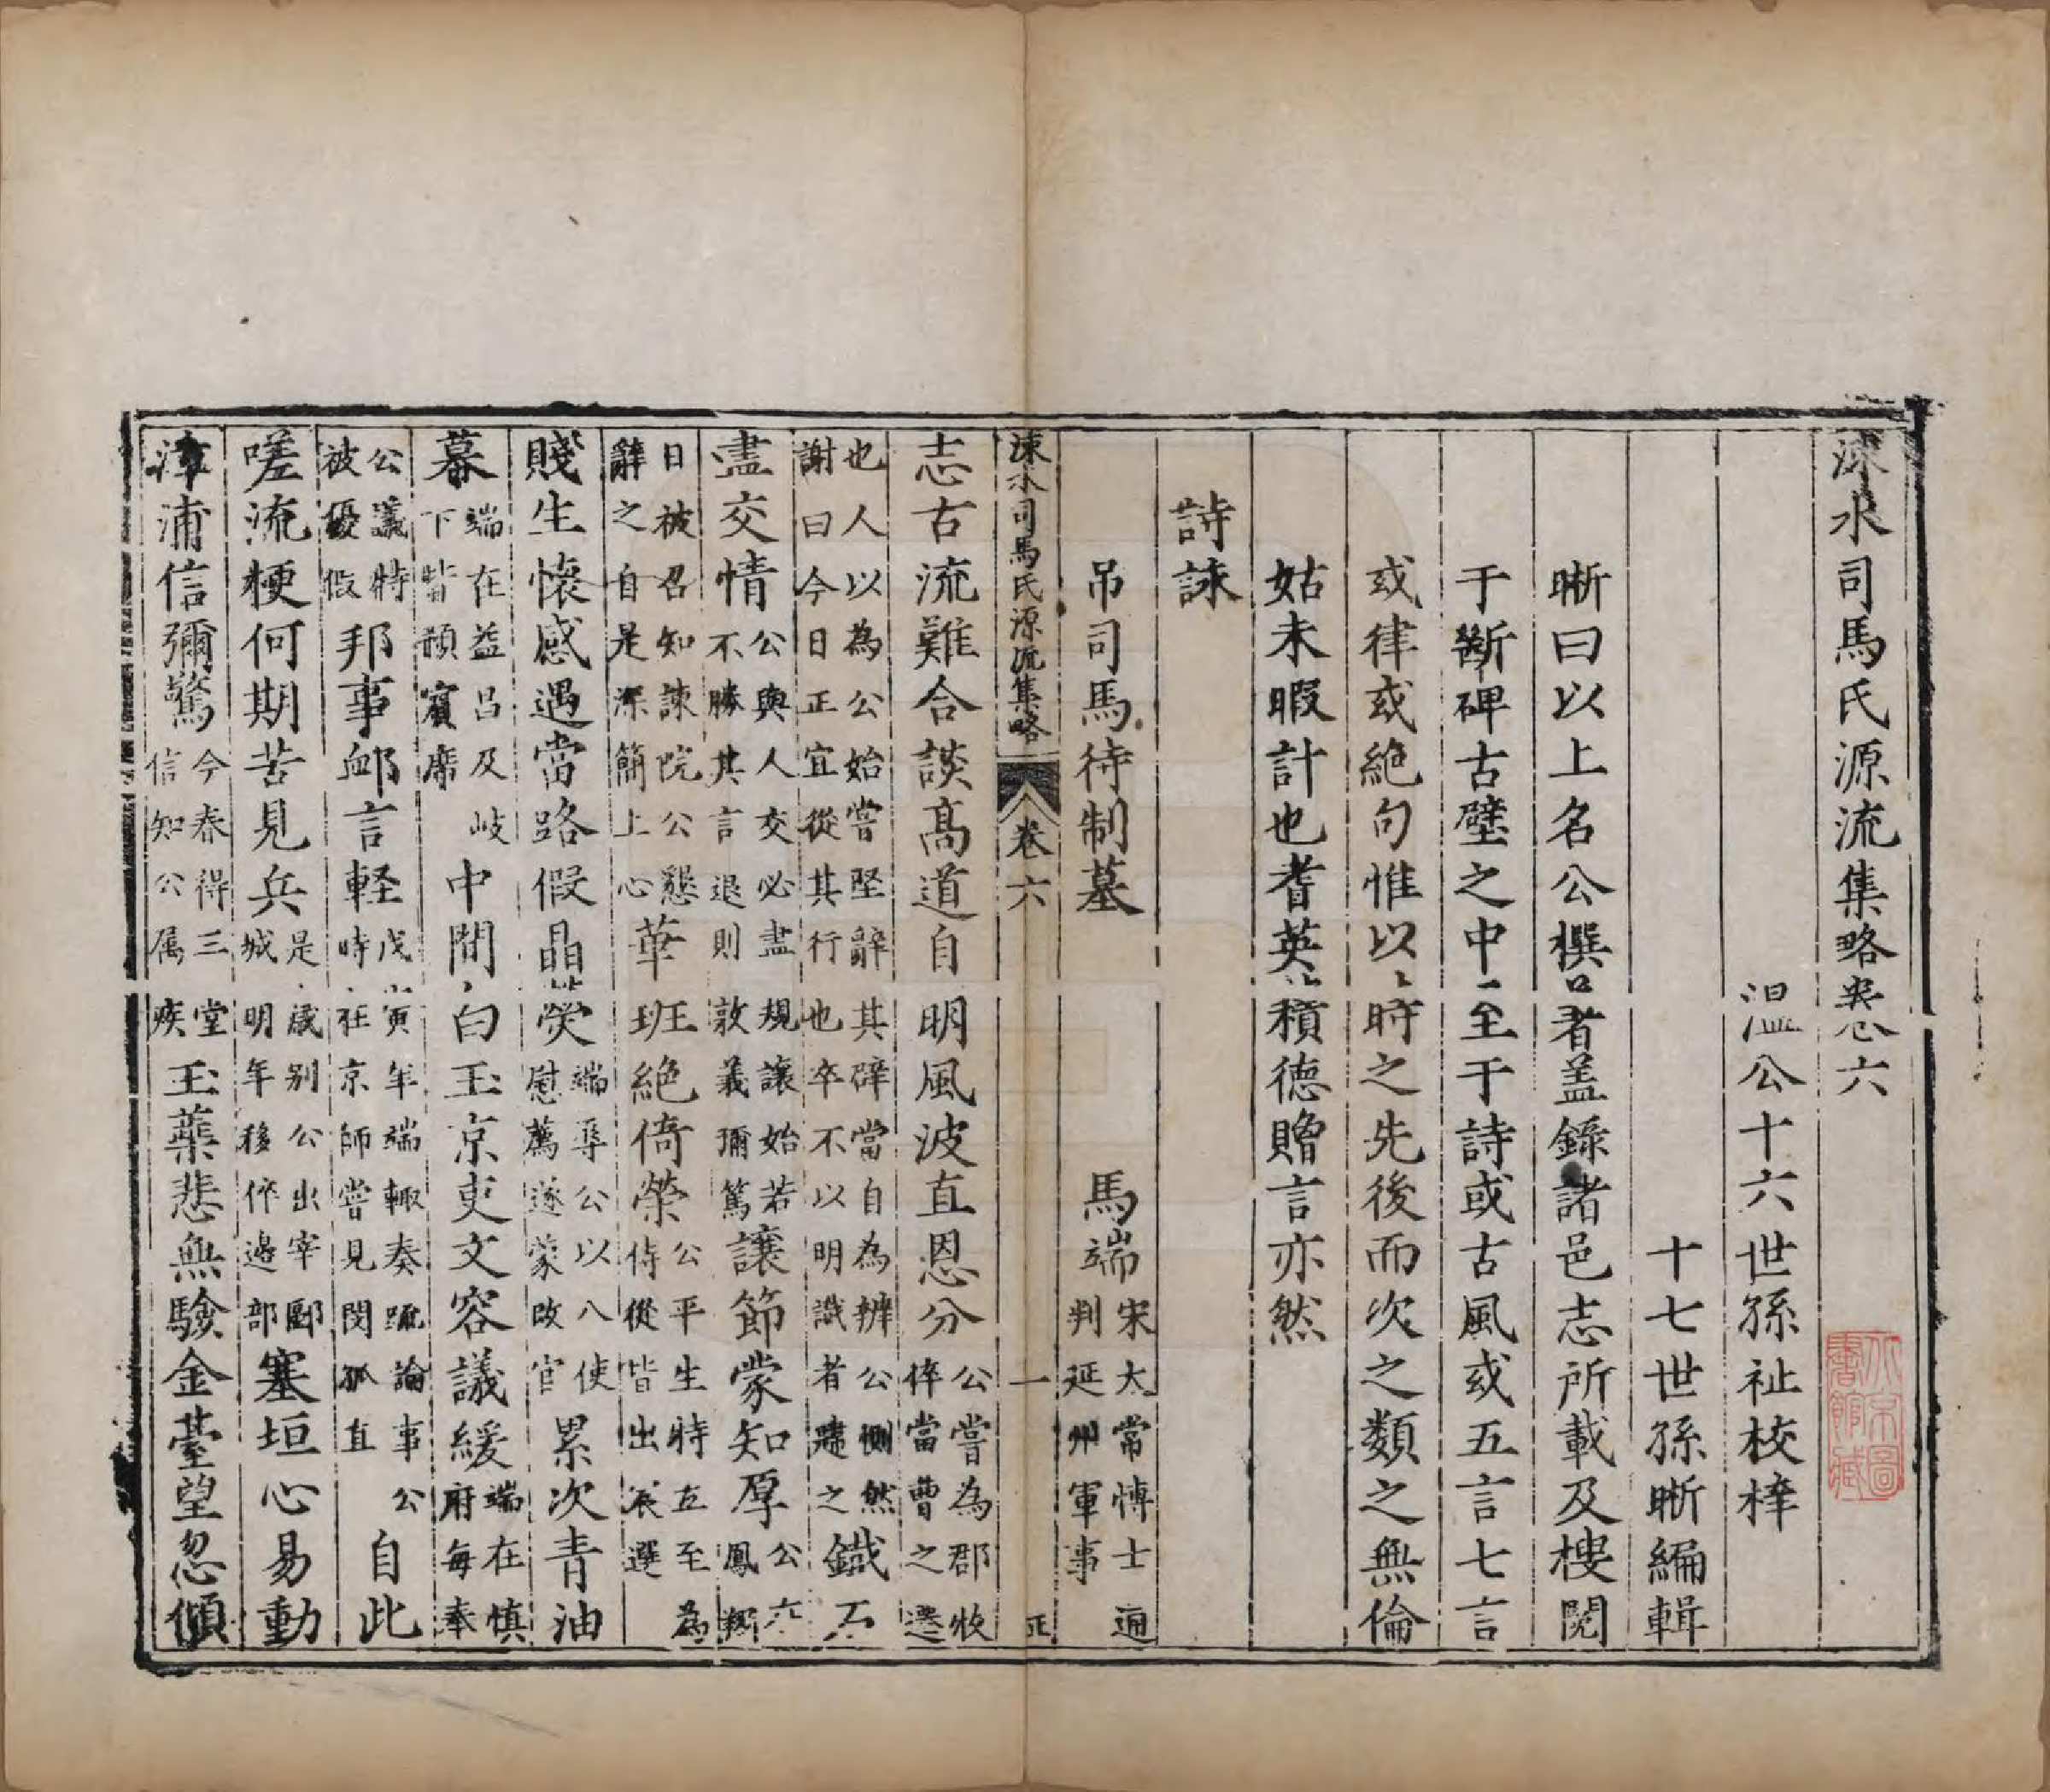 涑水司馬氏源流集略卷六
溫公十六世孫祉校梓
十七世孫晰編輯
晰曰以上名公撰呂者盖錄諸邑志所載及搜閱
于斷碑古壁之中至于詩或古風或五言七言
或律或絕句惟以時之先後而次之類之無倫
姑未暇計也耆英積德贈言亦然
詩詠
吊司馬待制墓 馬端宋大常博士通判延州軍事
涑水司馬氏源流集略 卷六 一 正
志古流難合談高道自明風波直恩分公嘗為郡牧倅當曹之遷
也人以為公始嘗堅辭其辟當自為辨公惻然謝曰今日正宜從其行也卒不以明識者韙之鐵石
盡交情公與人交必盡規讓始若不勝其言退則敦義彌篤讓節蒙知厚公六鳳翔
日被召知諫院公懇辭之自是深簡上心華班絕倚榮公平生時五至為侍從皆出宸選
賤生懷感遇當路假晶熒端辱公以八使慰薦遂蒙改官累次青油
幕端在益昌及岐下皆預賓席中間白玉京吏文容議緩端在慎府每奉
公議特被優假邦事䘏言輕戊寅年端輙奏疏論事公時在京師嘗見閔孤直自此
嗟流梗何期苦見兵是歲别公出宰郾城明年移倅邊部塞垣心易動
漳浦信彌驚今春得三堂信知公属疾玉藥悲無驗金臺望忽傾